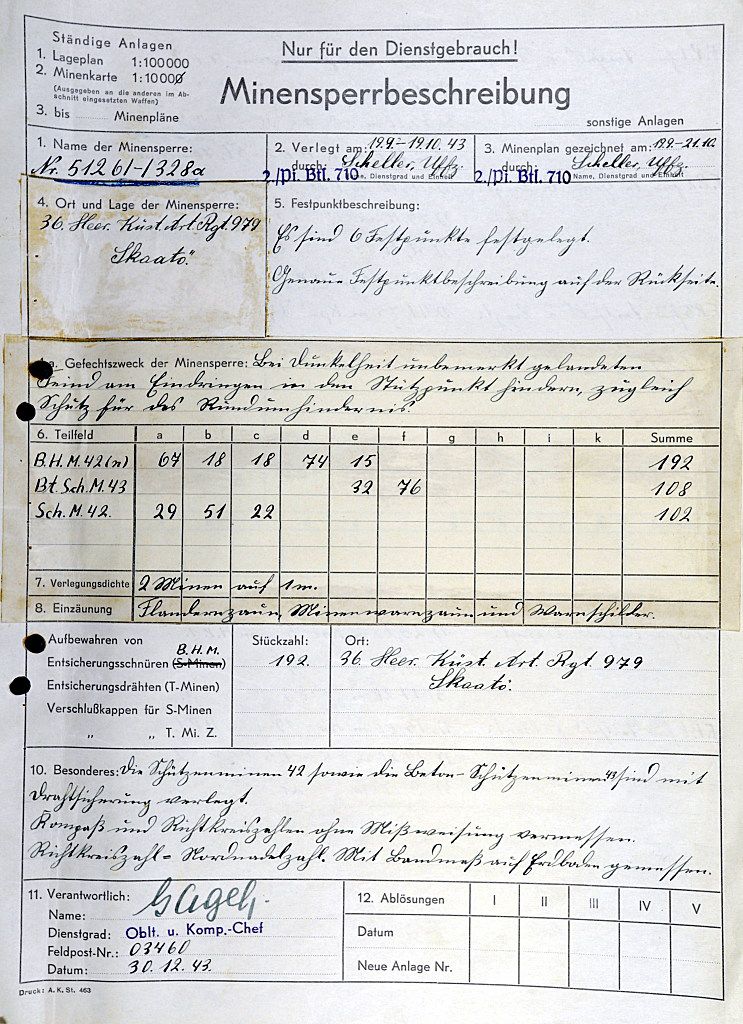 Ständige Anlagen
1. Lageplan 1:100000
2. Minenkarte 1:10000
(Ausgegeben an die anderen im Ab-
schnitt eingesetzten Waffen)
3. bis ........ Minenpläne
Nur für den Dienstgebrauch!
Minensperrbeschreibung
........ sonstige Anlagen
1. Name der Minensperre:
Nr. 51261-1328a
2. Verlegt am: 19.9.-19.10.43
durch: Scheller, Uffz.
2./Pi. Btl. 710
Name, Dienstgrad und Einheit
3. Minenplan gezeichnet am: 19.9.-21.10.
durch: Scheller, Uffz.
2./Pi. Btl. 710
Name, Dienstgrad und Einheit
4. Ort und Lage der Minensperre:
36. Heer. Küst. Art. Rgt. 979
"Skaatö."
5. Festpunktbeschreibung:
Es sind 6 Festpunkte festgelegt.
Genaue Festpunktbeschreibung auf der Rückseite.
a. Gefechtszweck der Minensperre: Bei Dunkelheit unbemerkt gelandeten
Feind am Eindringen in den Stützpunkt hindern, zugleich
Schutz für das Rundumhindernis.
6. Teilfeld a b c d e f g h i k Summe
B.H.M. 42(n) 67 18 18 74 15 192
Bt. Sch. M. 43 32 76 108
Sch. M. 42. 29 51 22 102
7. Verlegungsdichte 2 Minen auf 1 m.
8. Einzäunung Flandernzaun, Minenwarnzaun und Warnschilder.
Aufbewahren von
B.H.M.
Entsicherungsschnüren (S-Minen)
Entsicherungsdrähten (T-Minen)
Verschlußkappen für S-Minen
„ „ T. Mi. Z.
Stückzahl:
192.
Ort:
36. Heer. Küst. Art. Rgt 979
Skaatö.
10. Besonderes: Die Schützenminen 42 sowie die Beton-Schützenminen 43 sind mit
Drahtsicherung verlegt.
Kompaß und Richtkreiszahlen ohne Mißweisung vermessen.
Richtkreiszahl = Nordnadelzahl. Mit Bandmaß auf Erdboden gemessen.
11. Verantwortlich:
Name:
Dienstgrad: Oblt. u. Komp.-Chef
Feldpost-Nr.: 03460
Datum: 30.12.43.
12. Ablösungen I II III IV V
Datum
Neue Anlage Nr.
Druck: A. K. St. 463